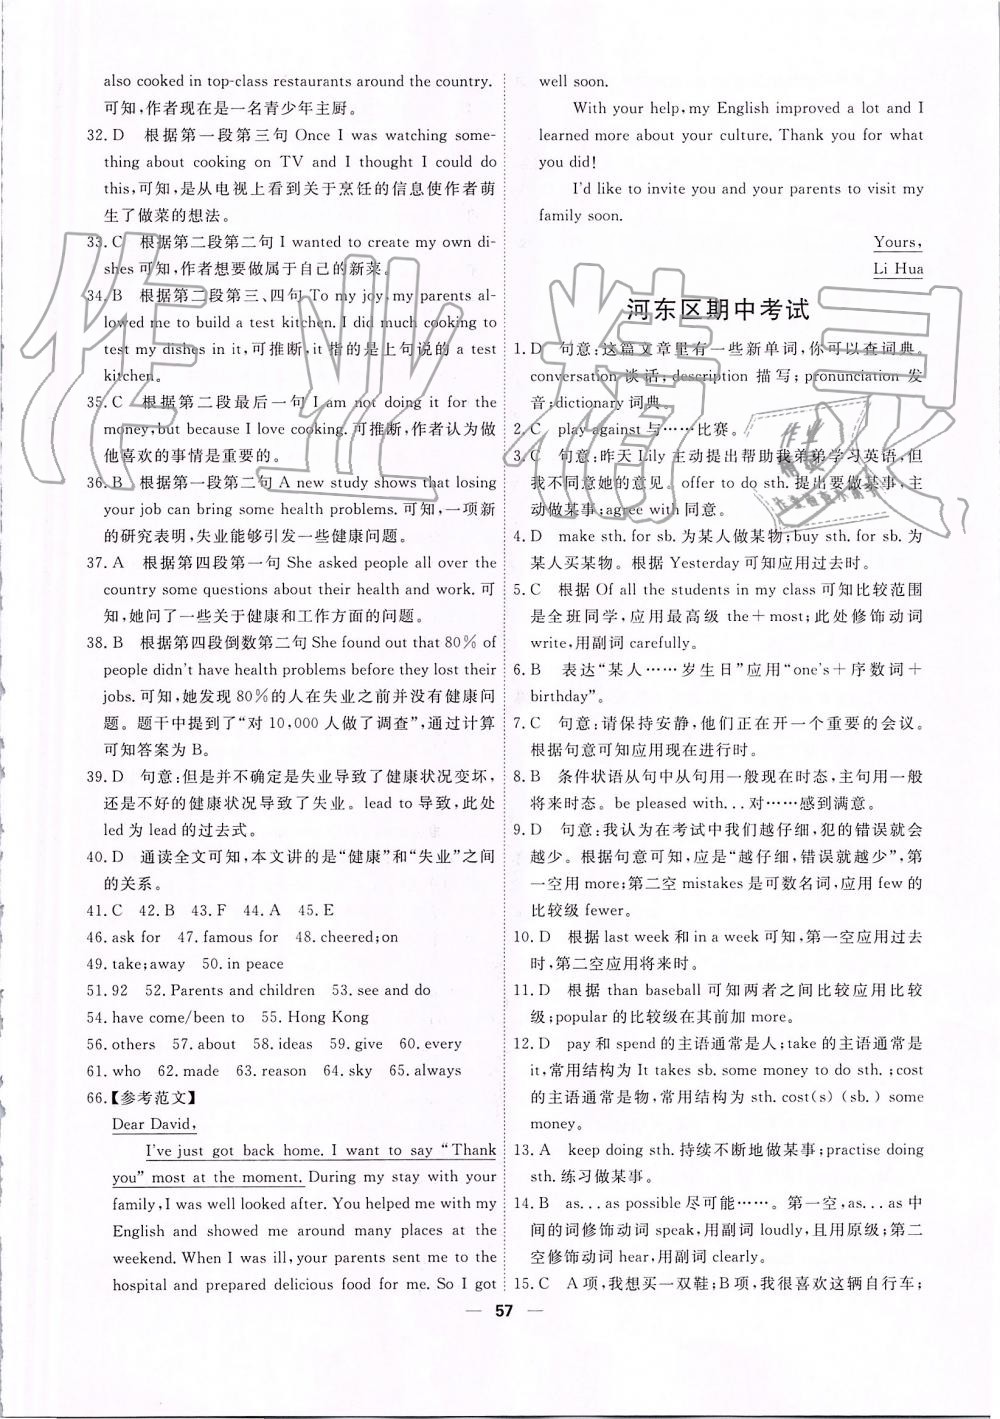 also cooked in top-class restaurants around the country.
可知,作者现在是一名青少年主厨。
32. D 根据第一段第三句 Once I was watching some-
thing about cooking on TV and I thought I could do
this,可知,是从电视上看到关于烹饪的信息使作者萌
生了做菜的想法。
33. C 根据第二段第二句 I wanted to create my own di-
shes 可知,作者想要做属于自己的新菜。
34. B 根据第二段第三、四句 To my joy, my parents al-
lowed me to build a test kitchen. I did much cooking to
test my dishes in it,可推断,it 指的是上句说的 a test
kitchen。
35. C 根据第二段最后一句 I am not doing it for the
money,but because I love cooking. 可推断,作者认为做
他喜欢的事情是重要的。
36. B 根据第一段第二句 A new study shows that losing
your job can bring some health problems. 可知,一项新
的研究表明,失业能够引发一些健康问题。
37. A 根据第四段第一句 She asked people all over the
country some questions about their health and work. 可
知,她问了一些关于健康和工作方面的问题。
38. B 根据第四段倒数第二句 She found out that 80% of
people didn't have health problems before they lost their
jobs. 可知,她发现 80%的人在失业之前并没有健康问
题。题干中提到了“对 10,000 人做了调查”,通过计算
可知答案为 B。
39. D 句意:但是并不确定是失业导致了健康状况变坏,
还是不好的健康状况导致了失业。lead to 导致,此处
led 为 lead 的过去式。
40. D 通读全文可知,本文讲的是“健康”和“失业”之间
的关系。
41. C 42. B 43. F 44. A 45. E
46. ask for 47. famous for 48. cheered;on
49. take;away 50. in peace
51. 92 52. Parents and children 53. see and do
54. have come/been to 55. Hong Kong
56. others 57. about 58. ideas 59. give 60. every
61. who 62. made 63. reason 64. sky 65. always
66.【参考范文】
Dear David,
I've just got back home. I want to say “Thank
you” most at the moment. During my stay with your
family,I was well looked after. You helped me with my
English and showed me around many places at the
weekend. When I was ill,your parents sent me to the
hospital and prepared delicious food for me. So I got
well soon.
With your help,my English improved a lot and I
learned more about your culture. Thank you for what
you did!
I'd like to invite you and your parents to visit my
family soon.
Yours,
Li Hua
河东区期中考试
1. D 句意:这篇文章里有一些新单词,你可以查词典。
conversation 谈话;description 描写;pronunciation 发
音;dictionary 词典。
2. C play against 与……比赛。
3. C 句意:昨天 Lily 主动提出帮助我弟弟学习英语,但
我不同意她的意见。offer to do sth. 提出要做某事,主
动做某事;agree with 同意。
4. D make sth. for sb. 为某人做某物;buy sth. for sb. 为
某人买某物。根据 Yesterday 可知应用过去时。
5. C 根据 Of all the students in my class 可知比较范围
是全班同学,应用最高级 the＋most;此处修饰动词
write,用副词 carefully。
6. B 表达“某人……岁生日”应用“one's＋序数词＋
birthday”。
7. C 句意:请保持安静,他们正在开一个重要的会议。
根据句意可知应用现在进行时。
8. B 条件状语从句中从句用一般现在时态,主句用一般
将来时态。be pleased with... 对……感到满意。
9. D 句意:我认为在考试中我们越仔细,犯的错误就会
越少。根据句意可知,应是“越仔细,错误就越少”,第
一空用 more;第二空 mistakes 是可数名词,应用 few 的
比较级 fewer。
10. D 根据 last week 和 in a week 可知,第一空应用过去
时,第二空应用将来时。
11. D 根据 than baseball 可知两者之间比较应用比较
级;popular 的比较级在其前加 more。
12. D pay 和 spend 的主语通常是人;take 的主语通常是
it,常用结构为 It takes sb. some money to do sth. ;cost
的主语通常是物,常用结构为 sth. cost(s) (sb.) some
money。
13. A keep doing sth. 持续不断地做某事;practise doing
sth. 练习做某事。
14. B as... as possible 尽可能……。第一空,as... as 中
间的词修饰动词 speak,用副词 loudly,且用原级;第二
空修饰动词 hear,用副词 clearly。
15. C A 项,我想买一双鞋;B 项,我很喜欢这辆自行车;
— 57 —
作业精灵